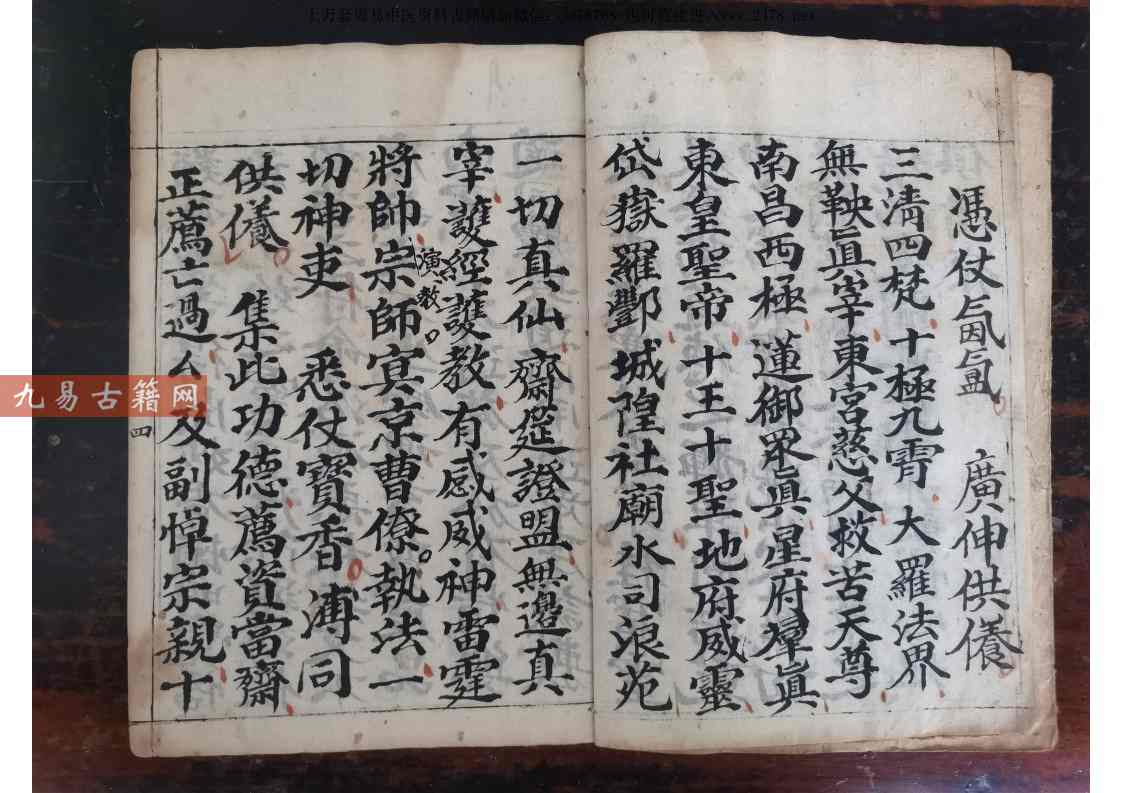 憑仗氤氳 廣伸供養
三清四梵十極九霄 大羅法界
無鞅眞宰東宮慈父救苦天尊
南昌西極蓮御眾眞星府羣眞
東皇聖帝十王十聖地府威靈
岱嶽羅酆城隍社廟水司浪苑
一切真仙齋筵證盟無邊真
宰護經護教有感威神雷霆
將帥宗師冥京曹僚執法一
演教
切神吏 悉仗寶香溥同
供養 集此功德薦資當齋
正薦亡過 又副悼宗親十
四
九易古籍网